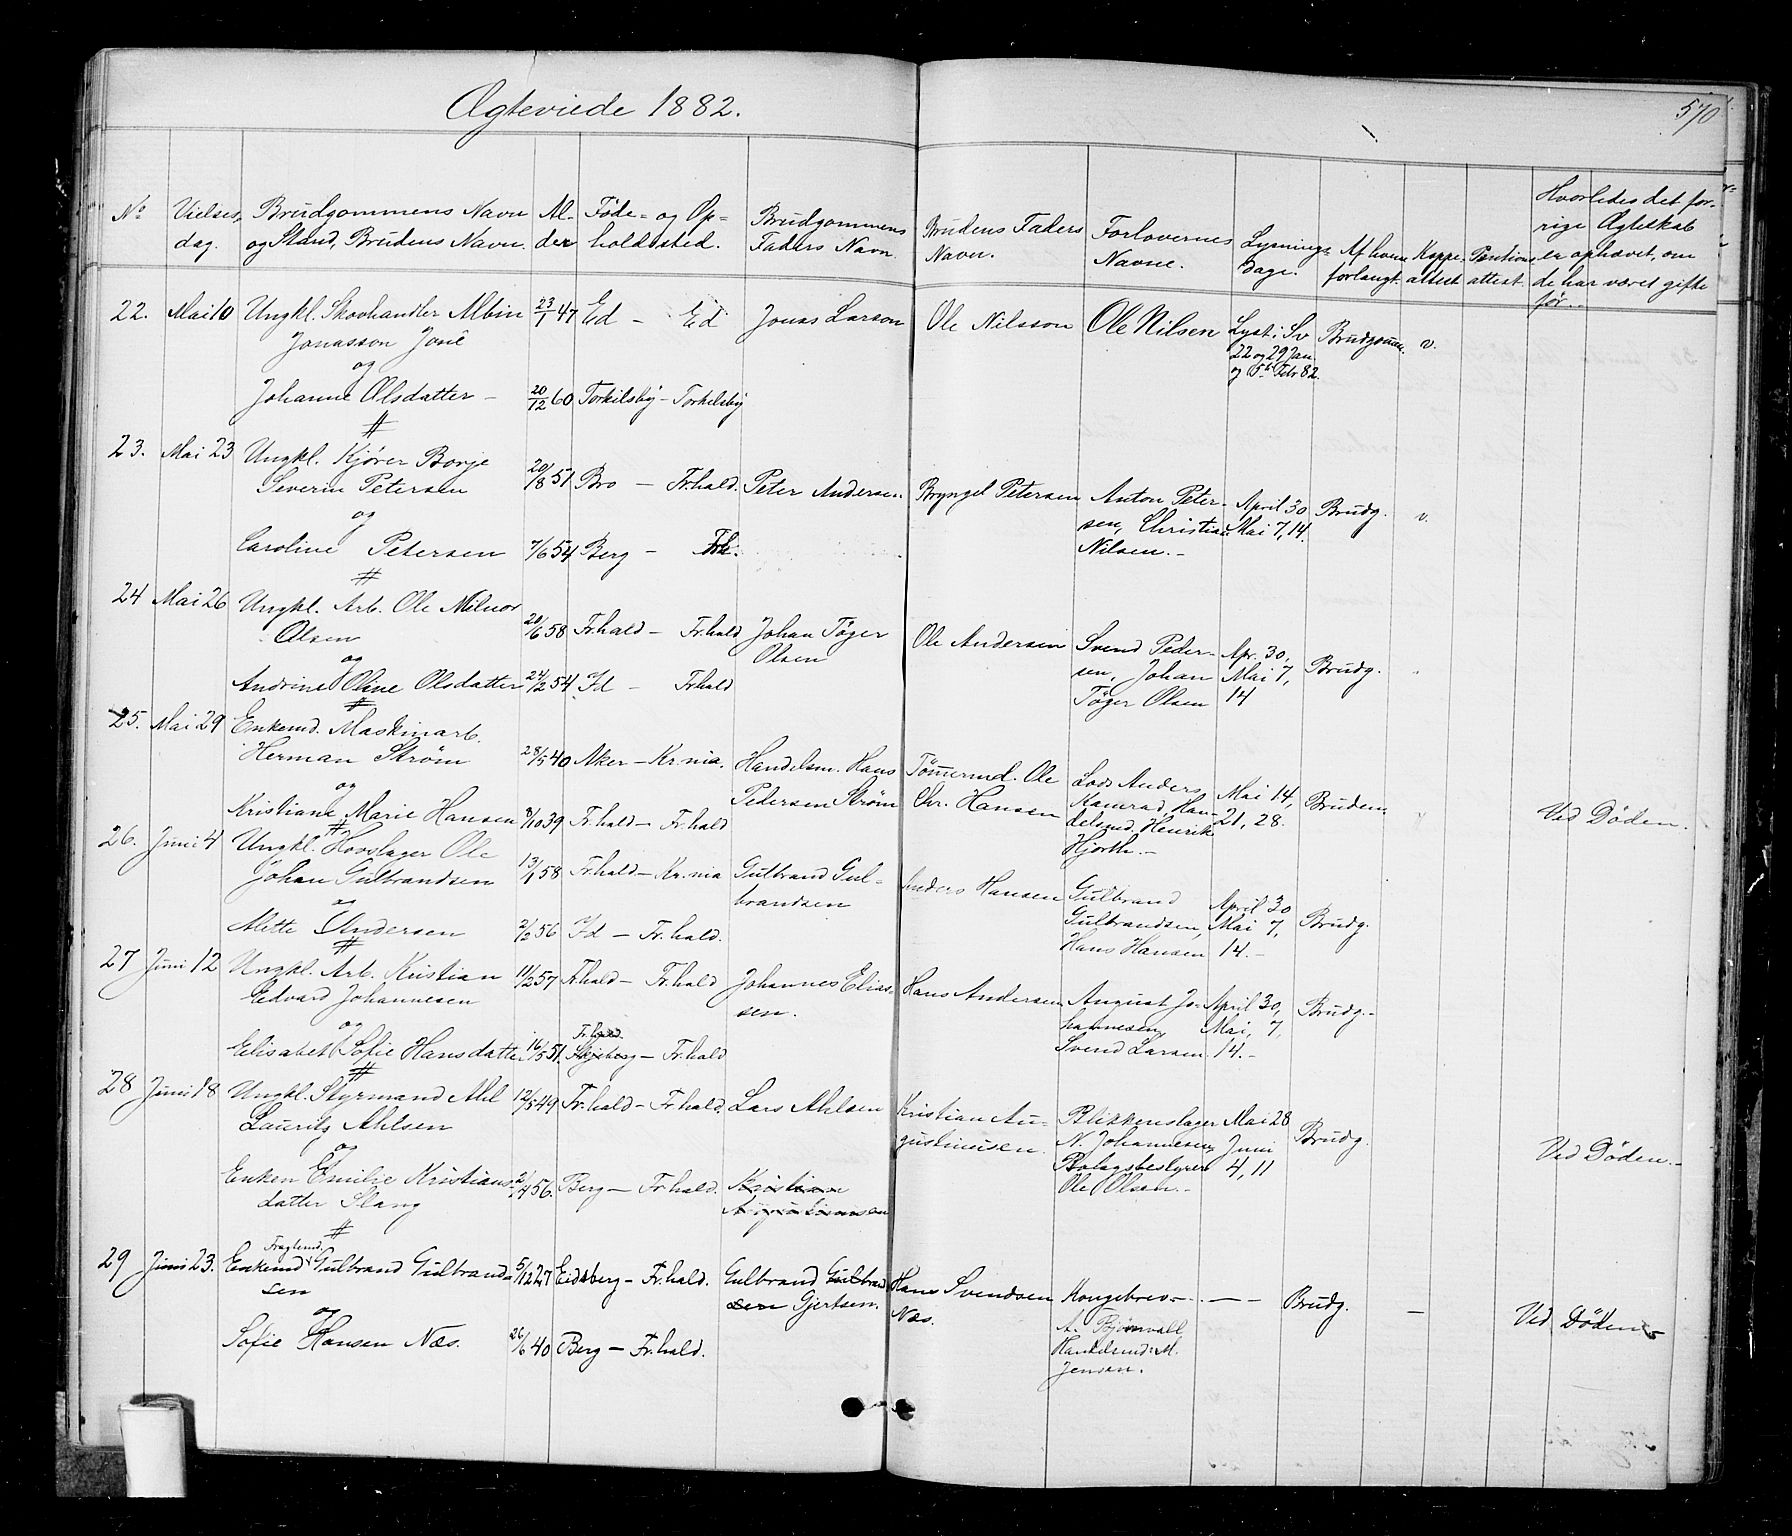 Ægteviede 1882.
570
No
Vielses, dag.
Brudgommens Navn og Stand, Brudens Navn.
Al- der
Føde- og Op- holdssted.
Brudgommens Faders Navn.
Brudens Faders Navn.
Forlovernes Navne.
Lysnings- Dage.
Af hvem forlangt.
Koppe- attest
attest.
Hvorledes det for- rige Ægteskab er ophævet, om de har været gifte før.
22. Mai 10 Ungkl. Skovhandler Albin 23/1 47 Ed — Ed Jonas Larson Ole Nilsson Ole Nilsen Lyst i Sv Brudgomm. v.
Jonasson Jonê 22 og 29 Jan.
og og 5te Febr 82.
Johanne Olsdatter — 20/12 60 Torkilsby — Torkilsby
23. Mai 23 Ungkl. Kjører Borje 20/8 51 Bro — Fr.hald. Peter Andersen. Bryngel Petersen Anton Peter- April 30 Brudg. v.
Severin Petersen sen, Christian Mai 7, 14.
og Nilsen. —
Caroline Petersen 7/6 54 Berg — Frh.
24 Mai 26 Ungkl. Arb. Ole Milnor 20/6 58 Fr.hald — Fr.hald Johan Tøger Ole Andersen Svend Peder- Apr. 30, Brudg.
Olsen Olsen sen, Johan Mai 7,
og Tøger Olsen 14
Andrine Oline Olsdatter 24/2 54 Id — Frhald
25. Mai 29 Enkemd. Maskinarb. 28/5 40 Aker — Kr.nia. Handelsm. Hans Tømmermd. Ole Lods Anders Mai 14, Bruden. Ved Døden.
Herman Strøm Pedersen Strøm Chr. Hansen Konrad Han- 21, 28.
og delsmd. Henrik
Kristiane Marie Hansen 8/10 39 Fr.hald — Fr.hald Hjorth. —
26. Juni 4 Ungkl. Hovslager Ole 13/1 58 Fr.hald — Kr.nia Gulbrand Gul- Anders Hansen Gulbrand April 30 Brudg.
Johan Gulbrandsen brandsen Gulbrandsen, Mai 7,
og Hans Hansen 14. —
Mette Andersen 2/2 56 Id — Fr.hald.
27 Juni 12 Ungkl. Arb. Kristian 11/2 57 Fr.hald — Fr.hald Johannes Elias- Hans Andersen August Jo- April 30, Brudg. —
Edvard Johannesen sen. hannesen, Mai, 7,
og Svend Larsen 14. —
Fr.hald.
Elisabet Sofie Hansdatter 16/5 51 Skjeberg — Fr.hald
28 Juni 18 Ungkl. Styrmand Ahl 12/5 49 Fr.hald — Fr.hald. Lars Ahlsen Kristian Au- Blikkenslager Mai 28 Brudg. Ved Døden. —
Laurits Ahlsen gustinusen. N. Johannesen, Juni
og Bolagsbestyrer 4, 11
Enken Emilie Kristians- 2/4 56. Berg — Fr.hald. Kristian Ole Olsen. —
datter Slang Augustinusen
Fragtemd.
29 Juni 23. Enkemd Gulbrand Gulbrand- 5/12 27 Eidsberg — Fr.hald. Gulbrand Gulbrand Hans Svendsen Kongebrev — — — Brudg. — Ved Døden —
sen sen Gjertsen. Næs. A. Bjørnvall
og Handelsmd. M.
Sofie Hansen Næs. 26/6 40 Berg — Fr.hald. Jensen.